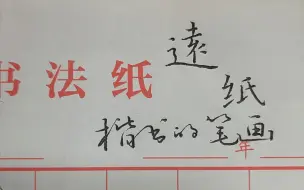 遠
书法纸
纸
楷书的笔画
年